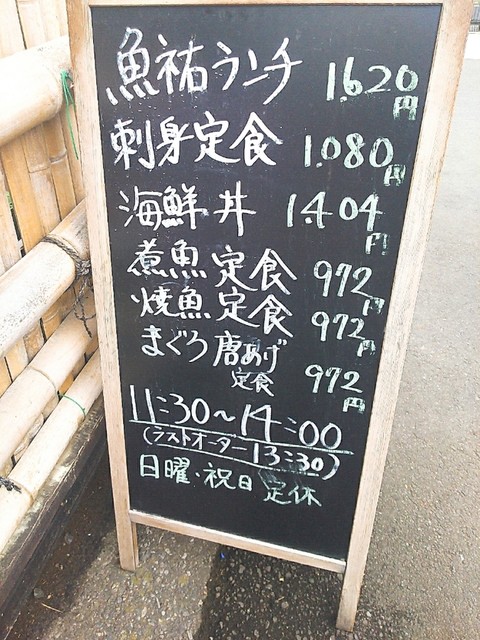 魚祐ランチ 1.620円
刺身定食 1.080円
海鮮丼 1.404円
煮魚定食 972円
焼魚定食 972円
まぐろ唐あげ定食 972円
11:30～14:00
(ラストオーダー 13:30)
日曜・祝日 定休